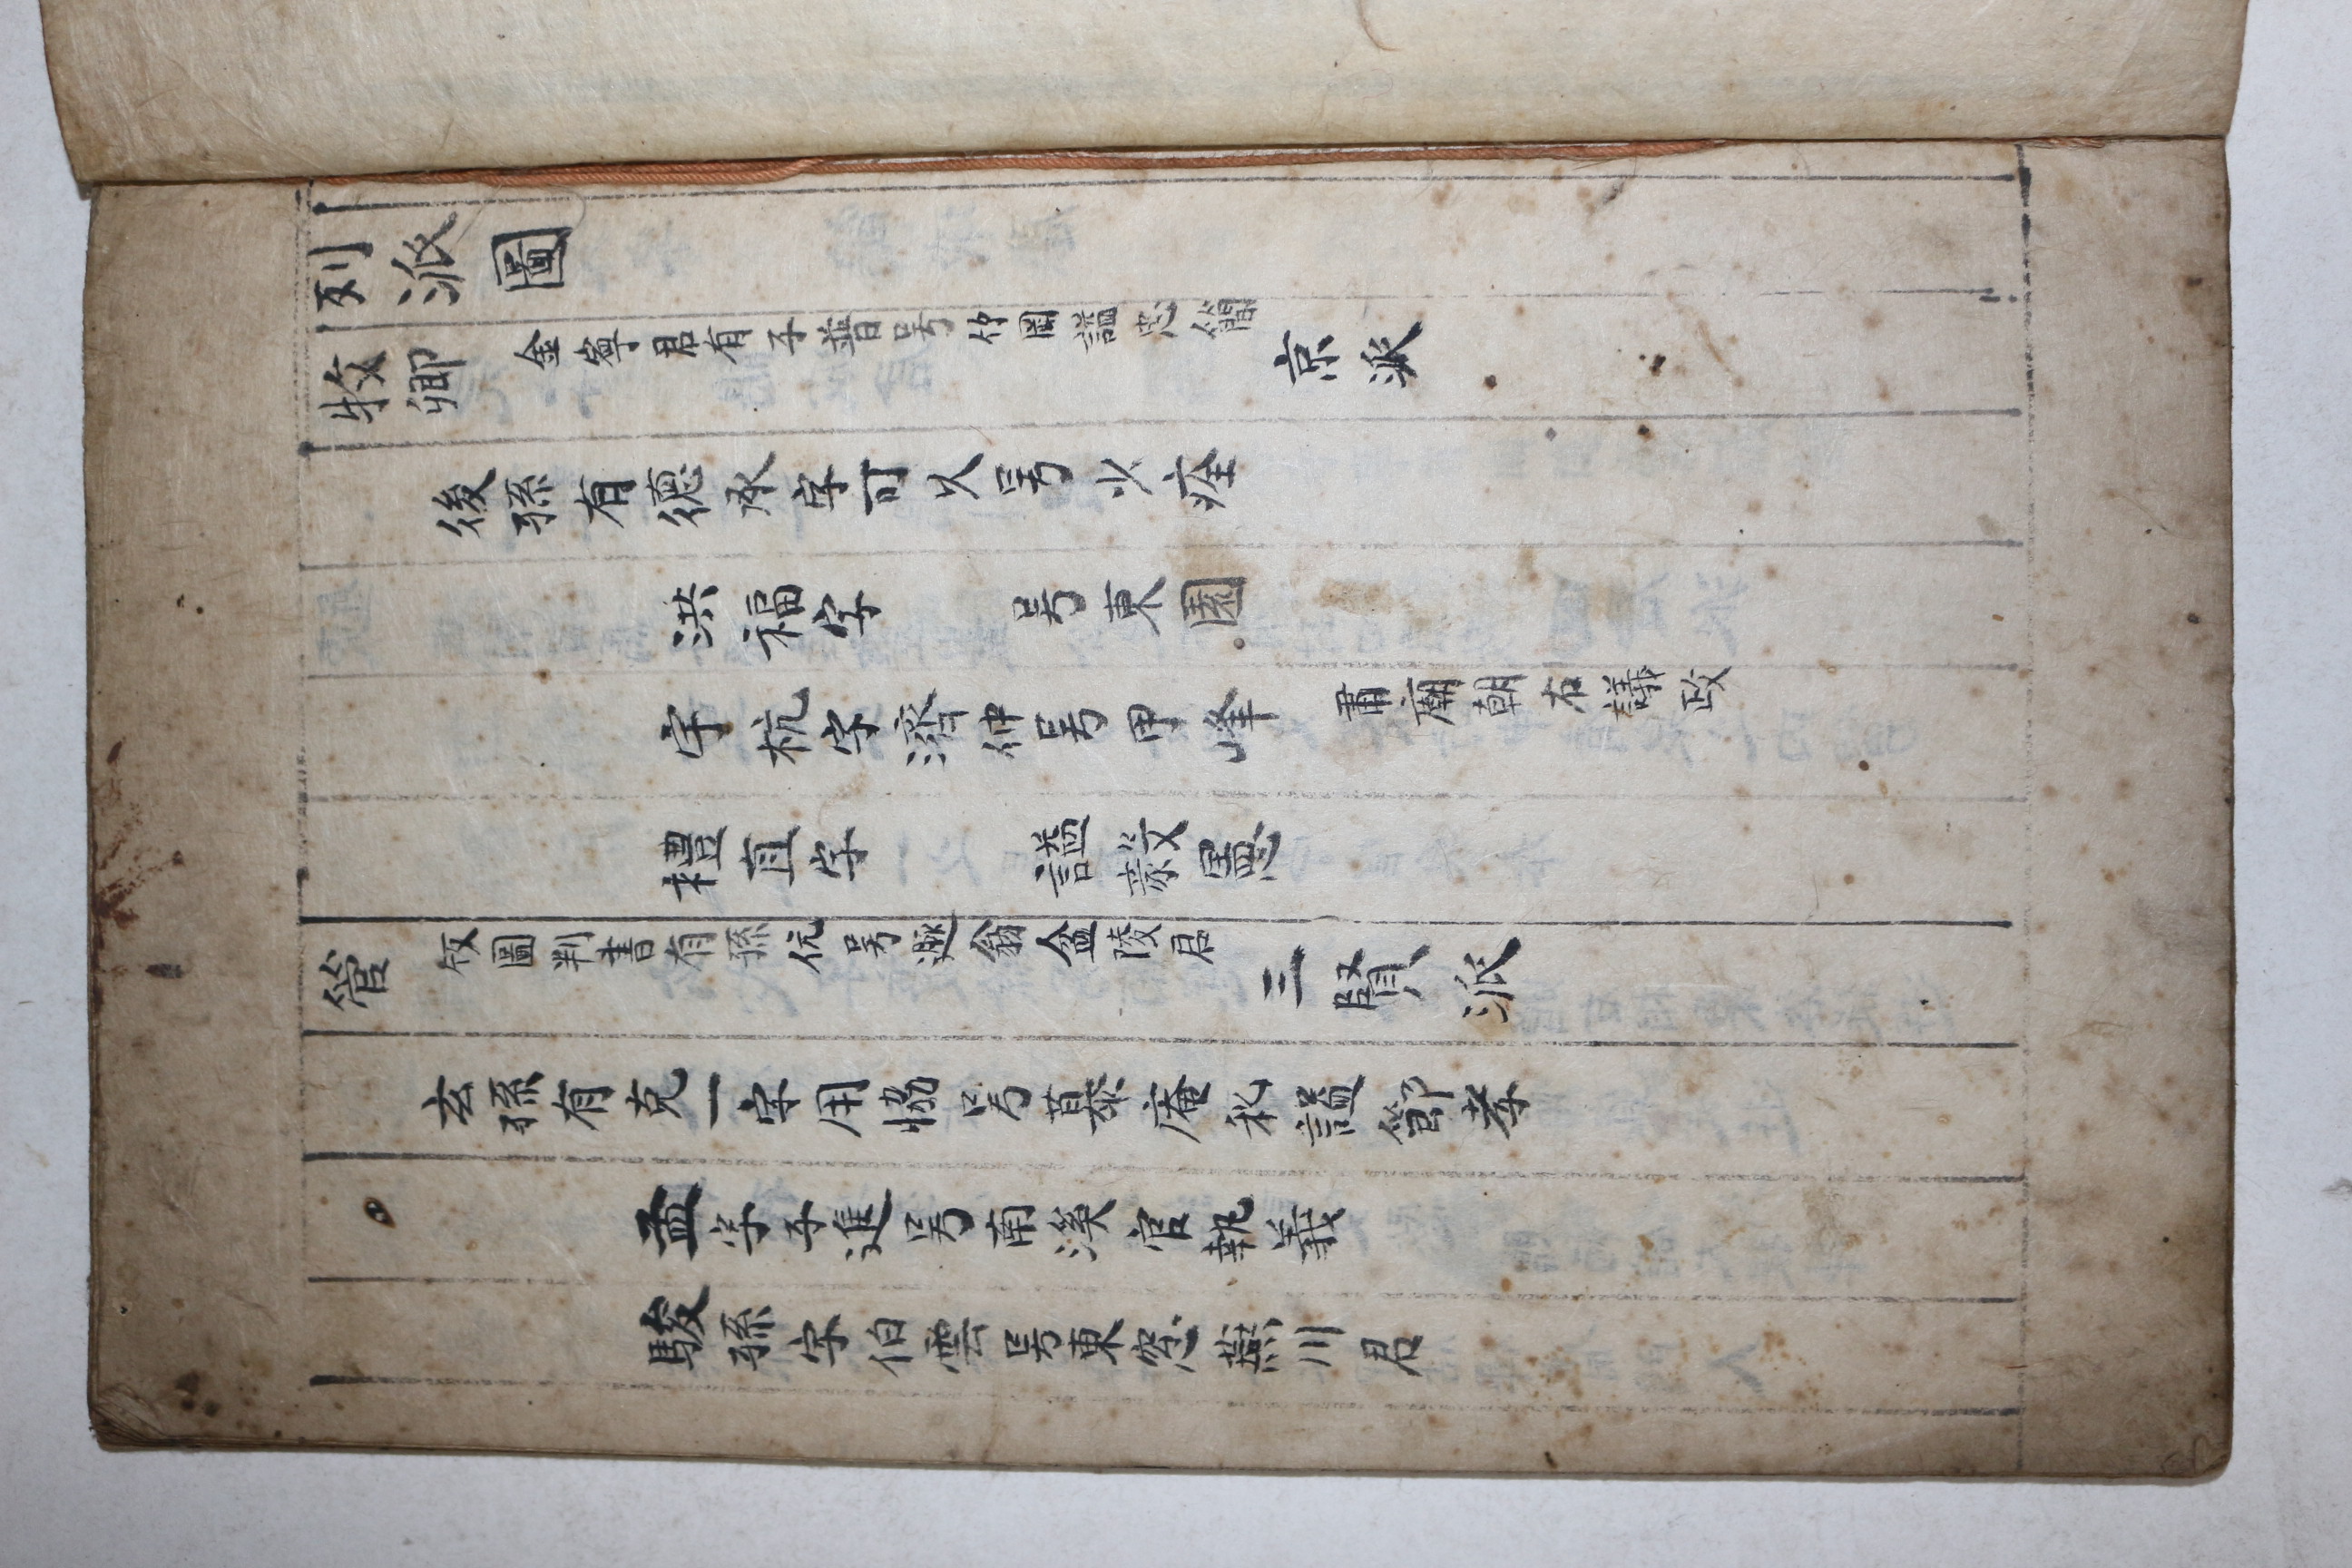 列派圖
牧卿 金寧君有子普号竹岡謚忠簡 京派
後孫有德承字可久号少痊
洪福字 号東園
宇杭字濟仲号甲峰 肅廟朝右議政
禮直字 謚毅憲
管 版圖判書有孫伉号遯翁盆陵君 三賢派
玄孫有克一字用恊号慕庵私謚節孝
孟字子進号南溪官執義
駿孫字伯雲号東窓燕川君